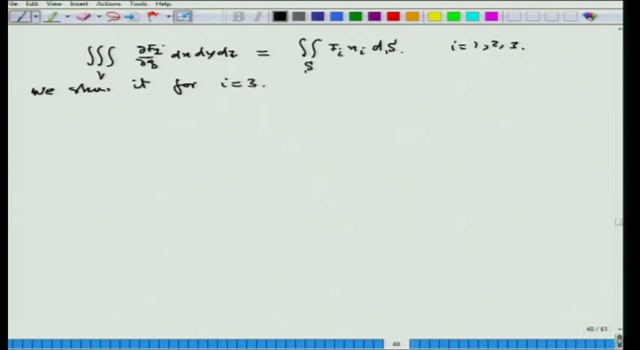 Edit View Insert Actions Tools Help
∭_V ∂F_i/∂x_i dx dy dz = ∬_S F_i n_i dS. i = 1, 2, 3.
we show it for i = 3.
40 / 61
40